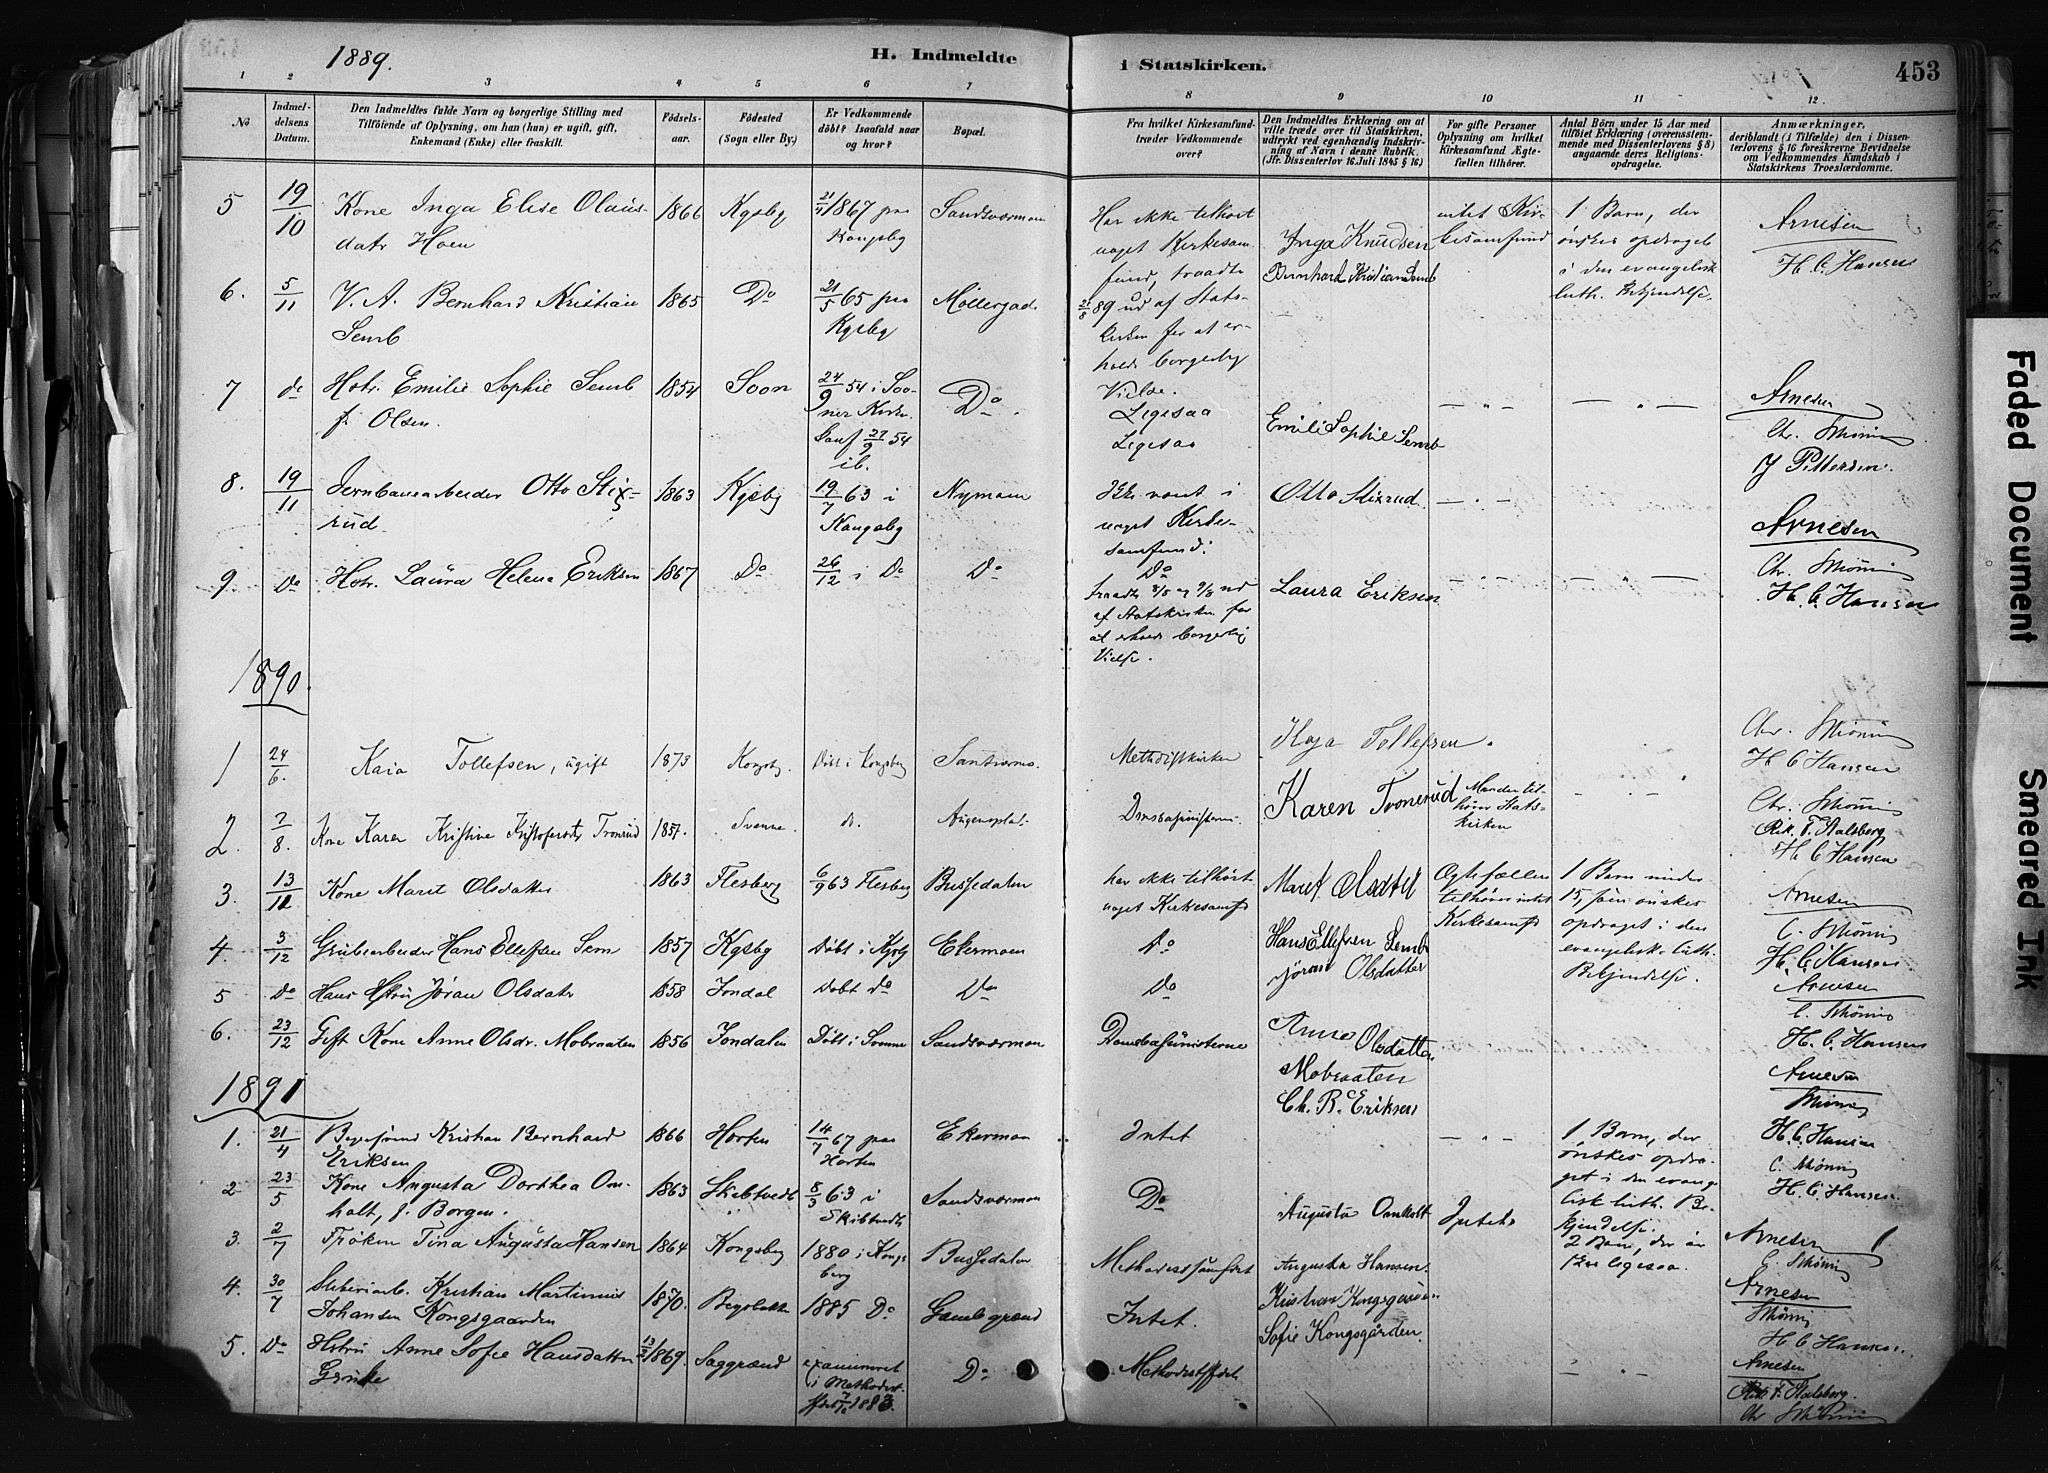 1889.
H. Indmeldte i Statskirken.
453
1 2 3 4 5 6 7 8 9 10 11 12
No
Indmeldelsens Datum.
Den Indmeldtes fulde Navn og borgerlige Stilling med
Tilföiende af Oplysning, om han (hun) er ugift, gift,
Enkemand (Enke) eller fraskilt.
Födselsaar.
Födested
(Sogn eller By.)
Er Vedkommende
döbt? Isaafald naar
og hvor?
Bopæl.
Fra hvilket Kirkesamfund
træder Vedkommende
over?
Den Indmeldtes Erklæring om at
ville træde over til Statskirken,
udtrykt ved egenhændig Indskrivning
af Navn i denne Rubrik.
(Jfr. Dissenterlov 16. Juli 1845 § 16)
For gifte Personer
Oplysning om hvilket
Kirkesamfund Ægtefællen
tilhörer.
Antal Börn under 15 Aar med
tilföiet Erklæring (overensstemmende
med Dissenterlovens § 8)
angaaende deres Religionsopdragelse.
Anmærkninger,
deriblandt (i Tilfælde) den i Dissenterlovens
§ 16 foreskrevne Bevidnelse
om Vedkommendes Kundskab i
Statskirkens Troeslærdomme.
5 19/10 Kone Inga Elise Olausdatr Hoen 1866 Kgsby 1867 paa Kongsby Sandsværmoen
Har ikke tilhørt noget Kirkesamfund, traadte 89 ud af Statskirken for at erholde borgerlig Vielse.
Inga Knudsen
intet Kirkesamfund
1 Barn, der ønskes opdraget i den evangelisk luth. Bekjendelse.
Arnesen
H. C. Hansen
6. 5/11 V. A. Bernhard Kristian Semb 1865 Do 21/5 65 paa Kgsby Møllergade
Ligesaa
Bernhard Kristian Semb
7 do Hstr. Emilie Sophie Semb f. Olsen. 1854 Soon 24/9 54 i Sooner Kirke 27/9 54 ib. Do.
Ligesaa
Emili Sophie Semb
Arnesen
Chr. Thorning
8. 19/11 Jernbanearbeider Otto Stixrud. 1863 Kgsby 19/7 63 i Kongsby Nymoen
Ikke været i noget Kirkesamfund.
Otto Stixrud
Arnesen
9. Do Hstr. Laura Helene Eriksen 1867 Do 26/12 i Do Do
Do traadte ud af Statskirken for at erholde borgerlig Vielse.
Laura Eriksen
H. C. Hansen
1890.
1 24/6. Kaia Tollefsen, ugift 1873 Kongsbg. Døbt i Kongsberg
Methodistkirken
Kaja Tollefsen.
H C Hansen
2 7/8. Kone Karen Kristine Tronrud 1857. Svenne. do.
Karen Tronerud
Manden tilhører Statskirken
H C Hansen
3. 13/11 Kone Marit Olsdatter 1863 Flesberg 6/9 63 Flesberg Bussedalen
har ikke tilhørt noget Kirkesamfd
Maret Olsdtr
Egtefællen tilhører intet Kirkesamfd
1 Barn under 15, som ønskes opdraget i den evangelisk luth. Bekjendelse.
Arnesen
4. 3/12 Grubearbeider Hans Ellefsen Sem 1857 Kgsbg Døbt i Kgsbg Ekermoen
Do
Hans Ellefsen Semb
H. C. Hansen
5 Do Hans Hstru Jøran Olsdatr 1858 Jondal Døbt do Do
Do
Jøran Olsdatter
Arnesen
6. 23/12 Gift Kone Anne Olsdr. Mobraaten 1856 Jondalen Døbt i Svenne Sandsværmoen
Anne Olsdatter Mobraaten
H. C. Hansen
Arnesen
1891
1. 21/4 Kristian Bernhard Eriksen 1866 Horten 14/7 67 paa Horten Ekermoen
Intet
Ch. B. Eriksen
1 Barn, der ønskes opdraget i den evangelisk luth. Bekjendelse.
H. C. Hansen
2 23/5 Kone Augusta Dorthea Omholt, f. Borgen. 1863 Skibtvedt 8/3 63 i Skibtvedt Sandsværmoen
Do
Augusta Omholt
Intet
2 Børn
H. C. Hansen
3. 2/7 Frøken Tina Augusta Hansen 1864 Kongsberg 1880 i Kongsberg Bussedalen
Methodistsamfdet
Augusta Hansen
Arnesen
4. 30/7 Kristian Martinius Johansen Kongsgaarden 1870. 1885 Do Gamlegrænd
Intet.
Kristian Kongsgaarden
Arnesen
H C Hansen
5. Do Hstru Anne Sofie Hansdatter 1869. Saggrænd examineret i Methodistsfdet 1883. Do
Methodistsfdet
Sofie Kongsgården.
Arnesen
F. Stalsberg.
Faded Document
Smeared Ink